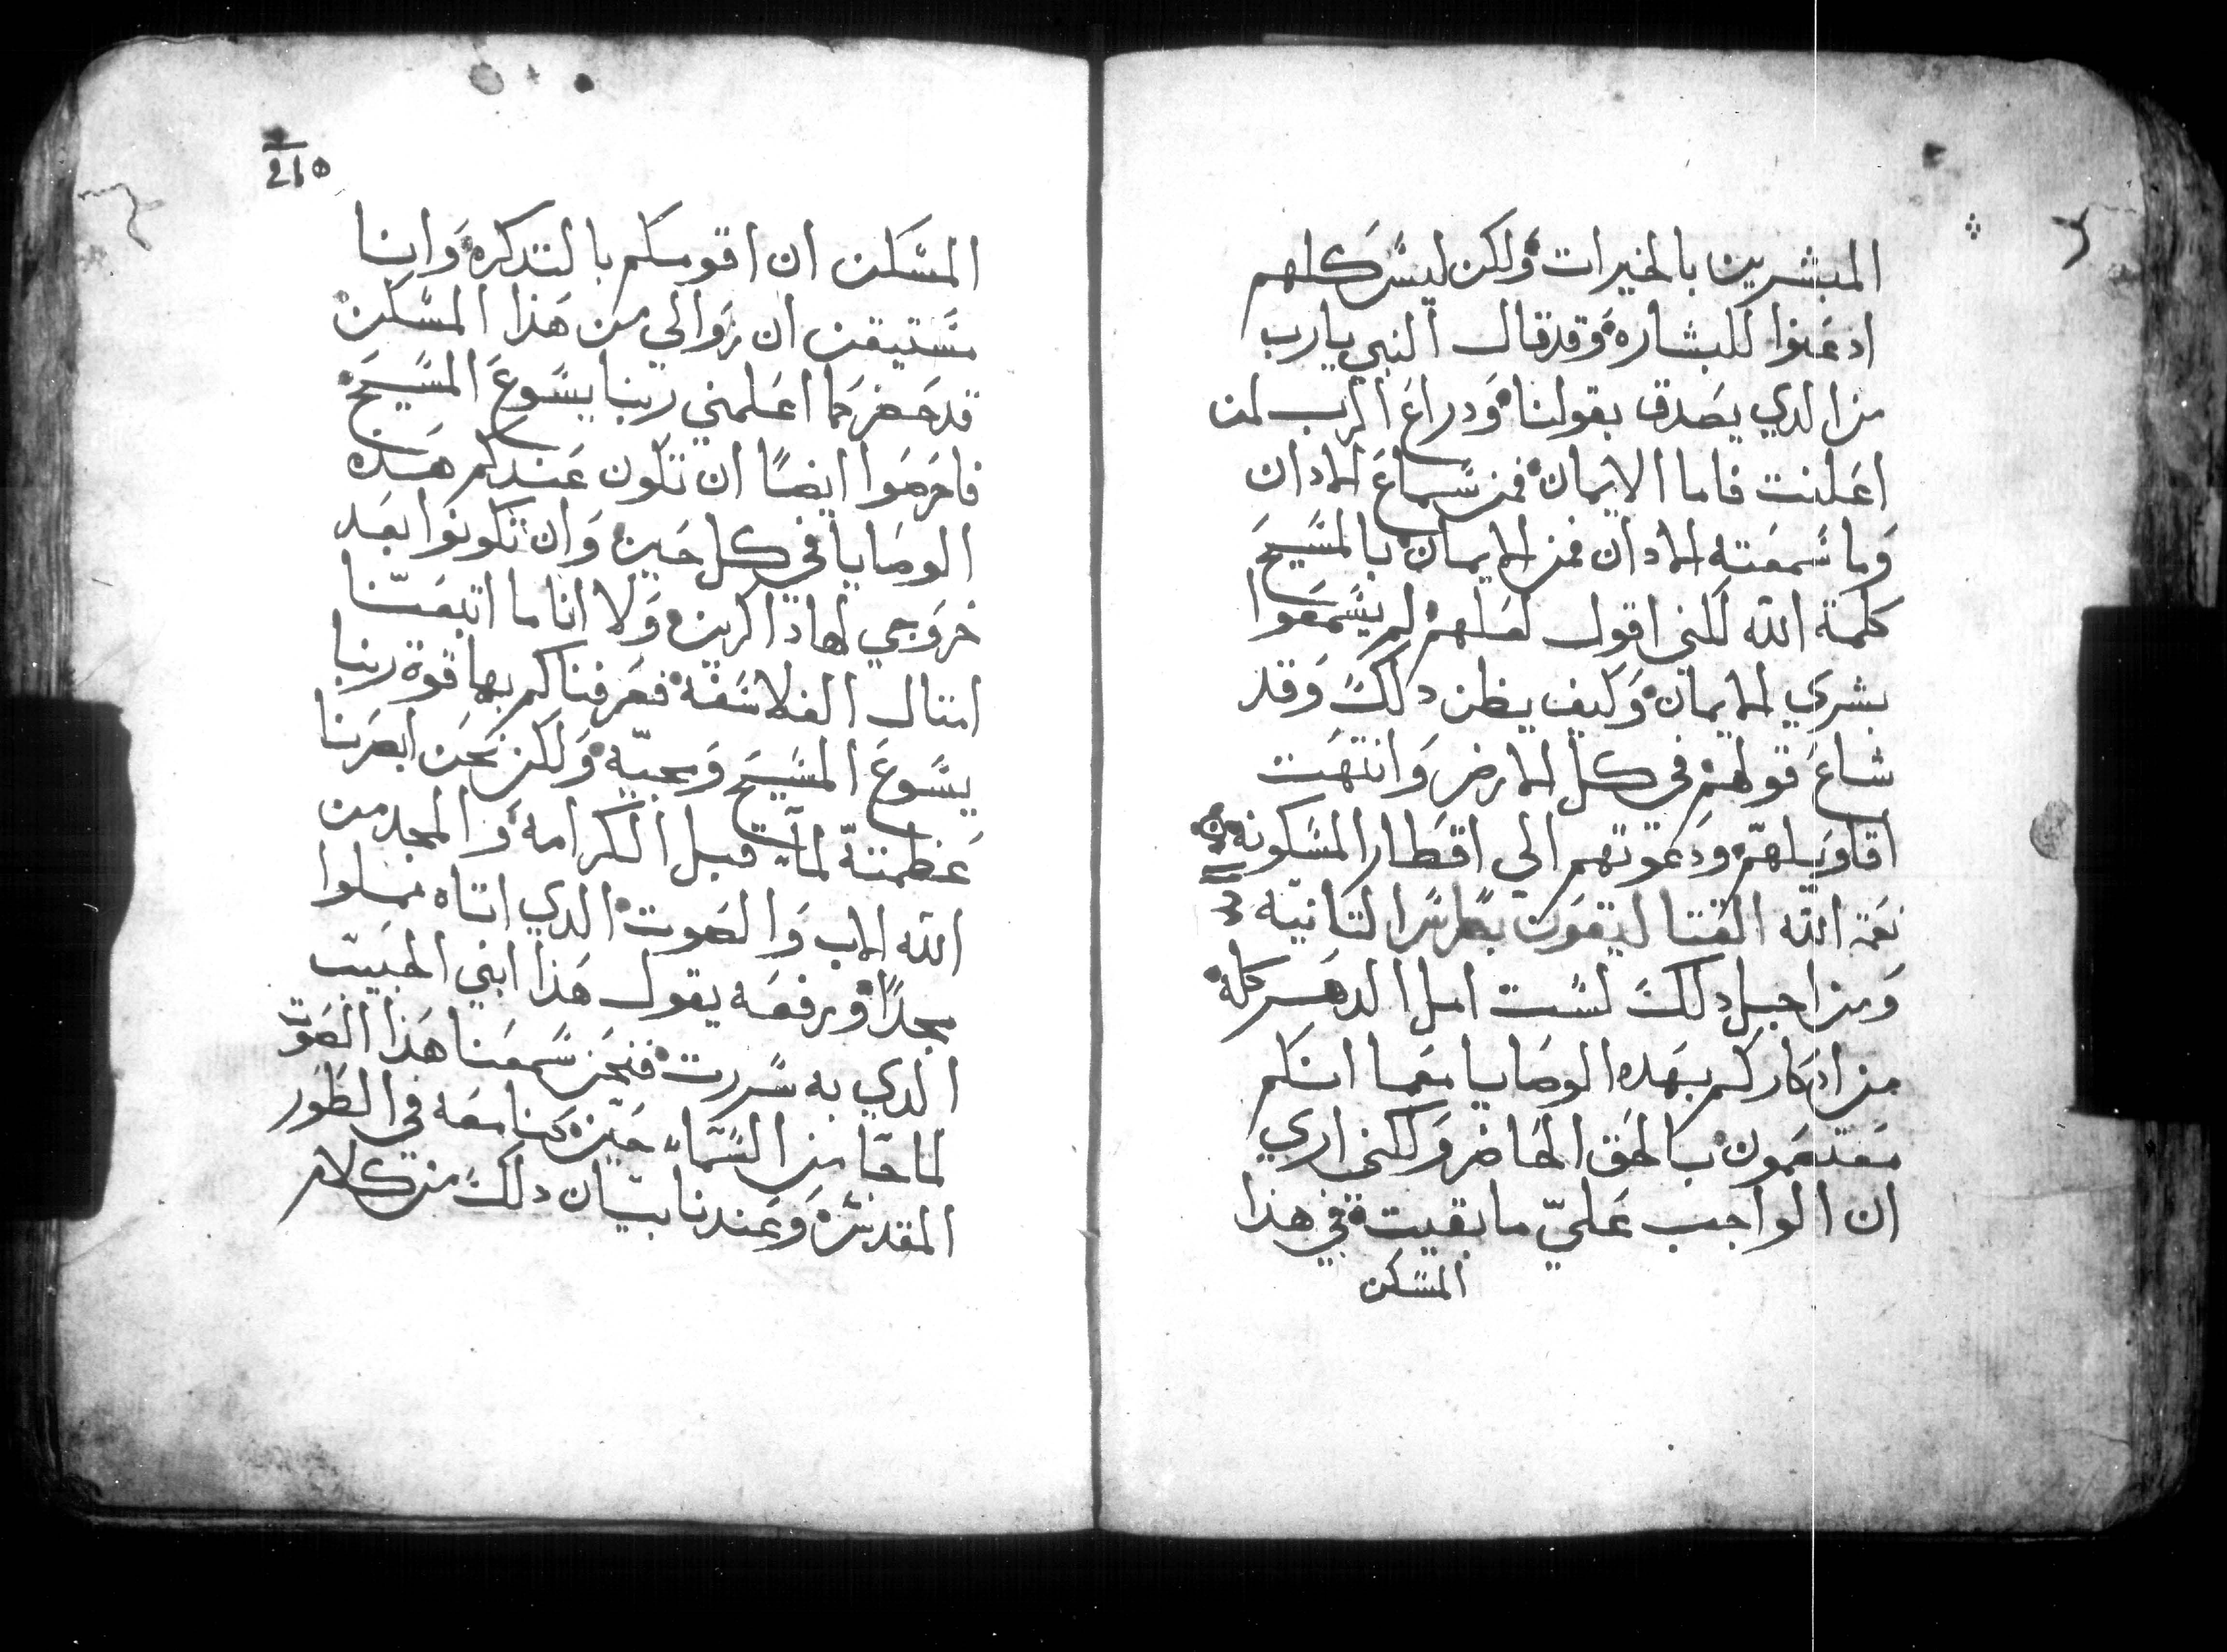 المبشرين بالخيرات ولكن ليس كلهم
ادعنوا للبشاره وقد قال النبي يارب
من الدي يصدق بقولنا ودراع الرب لمن
اعلنت فاما الايمان فمن سماع الادان
وما سمعته الادان فمن الايمان بالمسيح
كلمة الله لكني اقول لعلهم لم يسمعوا
بشري الايمان وكيف يظن دلك وقد
شاع قولهم في كل الارض وانتهت
اقاويلهم ودعوتهم الي اقطار المسكونه
نعمة الله القتاليقون بطرس التانيه
ومن اجل دلك لست امل الدهر كله
من ادكاركم بهده الوصايا معما انكم
معتصمون بالحق الحاضر ولكني اري
ان الواجب عليّ ما بقيت في هذا
المسكن
210
المسكن ان اقومكم بالتدكره وانا
مستيقن ان زوالي من هذا المسكن
قد حضر كما اعلمني ربنا يسوع المسيح
فاحرصوا ايضًا ان تكون عندكم هده
الوصايا في كل حين وان تكونوا بعد
خروجي لهادا الرين ولا انا ما اتبعنا
امتال الفلاسفه فعرفناكم بها قوة ربنا
يسوع المسيح ومجيّه ولكن نحن ابصرنا
عظمته لما قبل الكرامه والمجد من
الله الاب والصوت الدي اتاه مملوا
مجدًا ورفعه يقول هذا ابني الحبيب
الدي به سررت فنحن سمعنا هذا الصوت
لما جا من السماء حين كنا معه في الطور
المقدس وعندنا بيان دلك من كلام